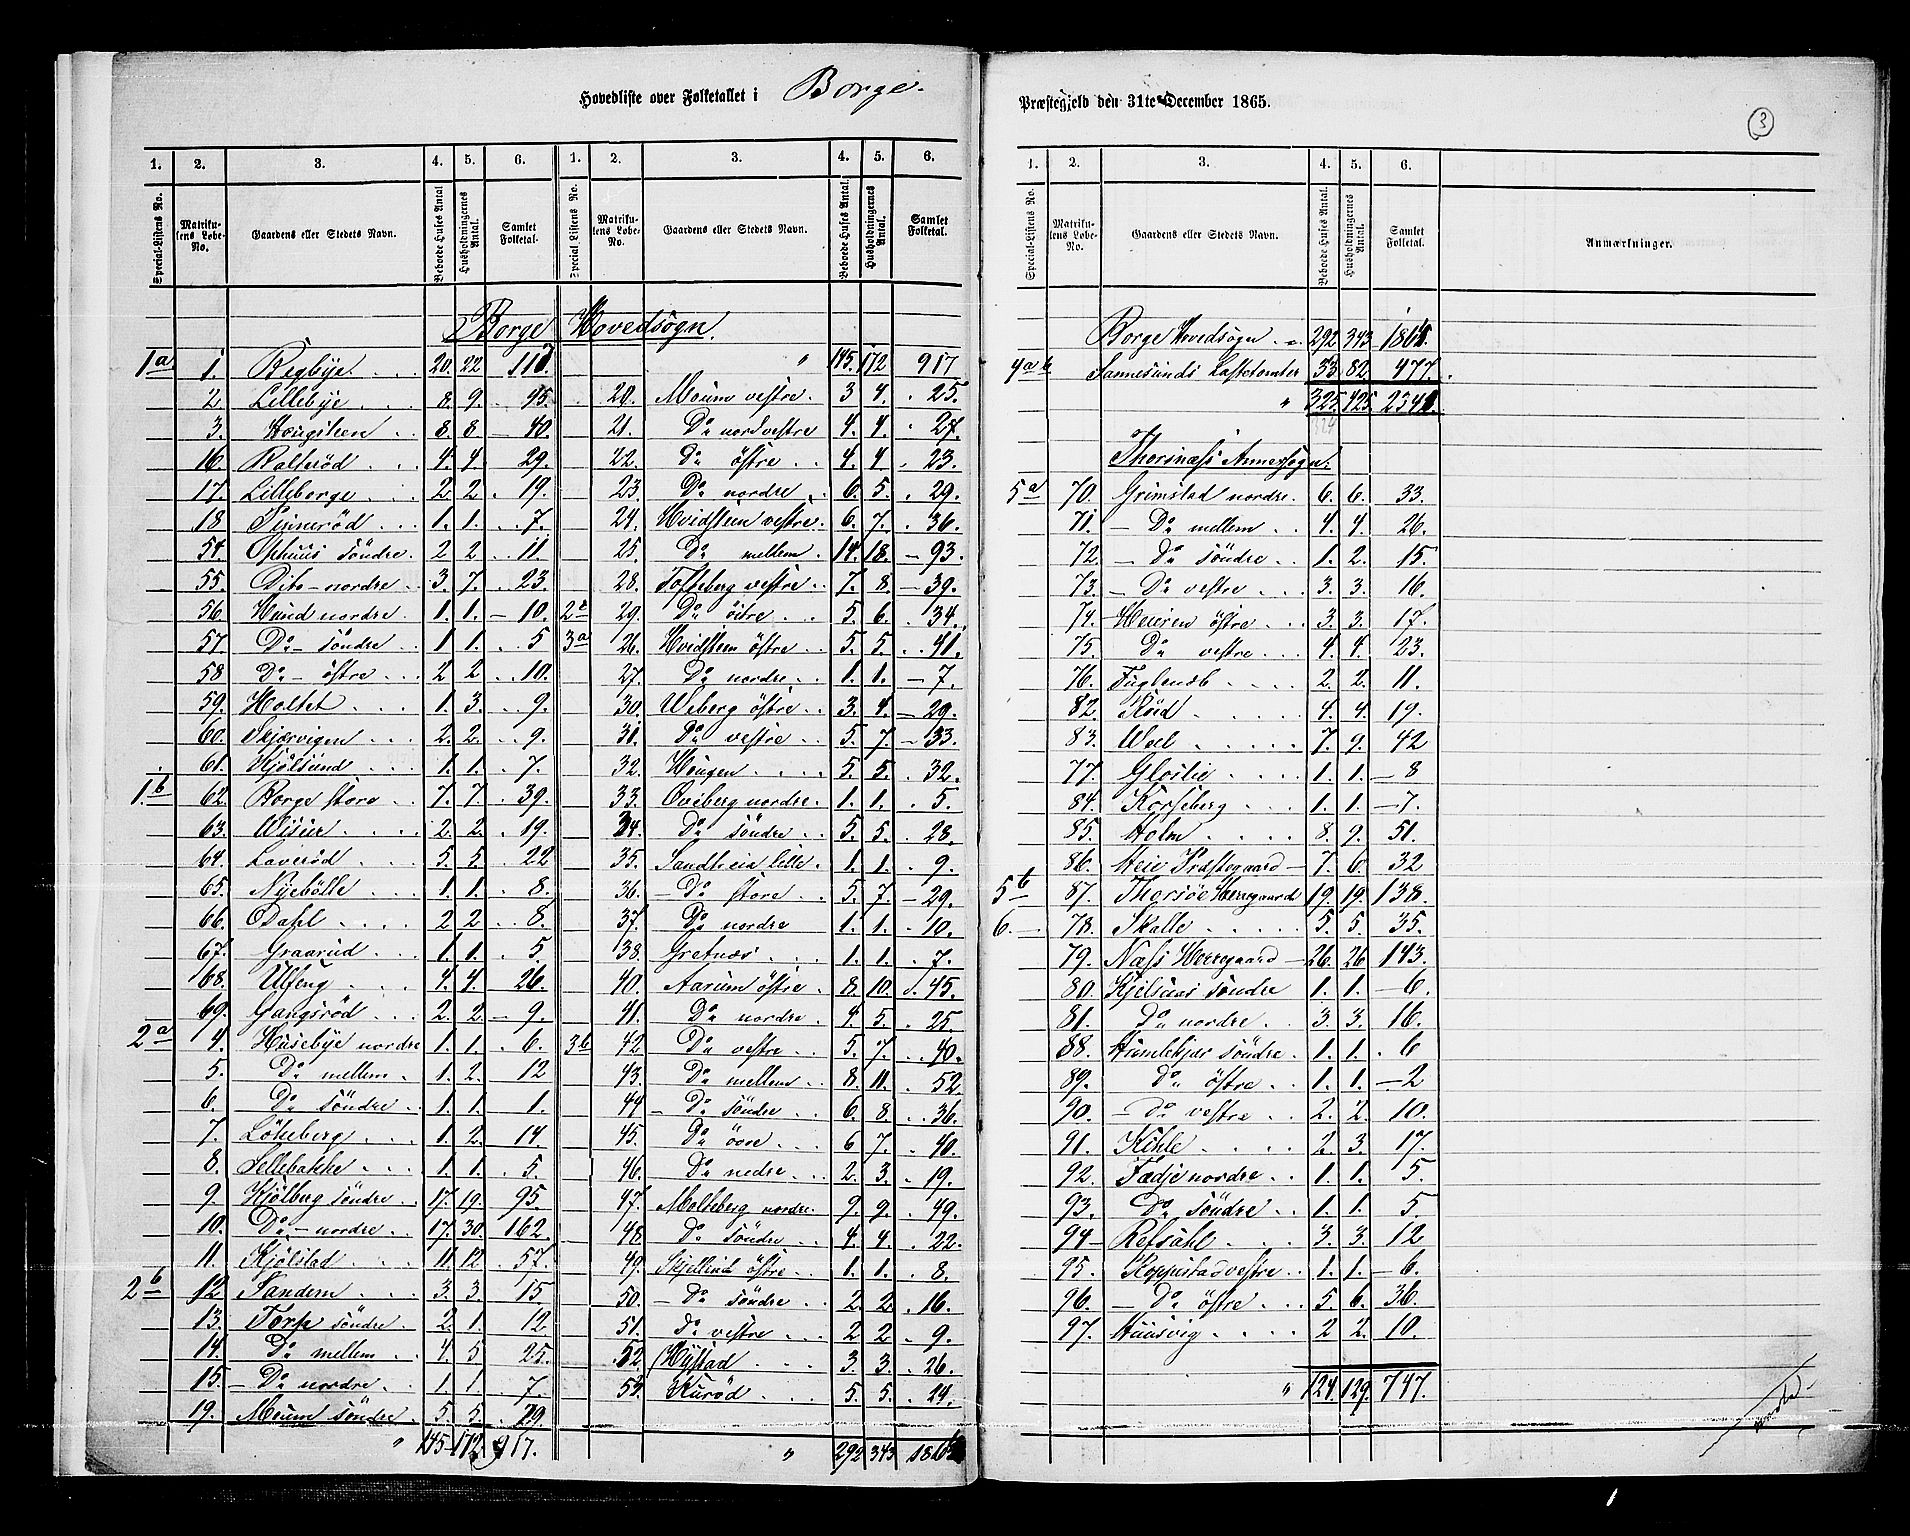 Hovedliste over Folketallet i Borge.
1. 2. 3. 4. 5. 6. 1. 2. 3. 4. 5. 6.
Special-Listens No. Matrikulens Løbe-No. Gaardens eller Stedets Navn. Beboede Huses Antal Husholdningernes Antal. Samlet Folketal. Special Listens No. Matrikulens Løbe-No. Gaardens eller Stedets Navn. Beboede Huses Antal. Husholdningernes Antal. Samlet Folketal.
Borge Hovedsogn.
1a 1. Begbye 20. 22 117
2. Lillebye 8. 9. 45.
3. Hougsteen 8. 8 40.
16. Rolfsöd 4. 4. 29.
17. Lilleborge 2. 2. 19.
18 Sinneröd 1. 1. 7.
54. Ophuus söndre. 2 2 11.
55. Dito nordre 3. 7. 23.
56. Hund nordre 1. 1. 10.
57. Do söndre 1 1. 5
58 Do östre 2 2 10.
59. Holtet 1. 3. 9.
60. Skjærvigen 2. 2. 9.
61. Kjölsund 1. 1. 7.
1b 62. Borge store 7. 7. 39.
63. Wisur 2. 2. 19.
64. Laveröd 5. 5. 22
65. Nyebölle 1. 1. 8.
66. Odahl 2 2 8.
67. Graarud 1. 1. 5.
68. Ulfeng 4. 4 26.
69. Gangsröd 2. 2 9.
2a 4. Husebye nordre 1. 1. 6.
5. Do mellem 1. 2. 12
6. Do söndre 1. 1. 1.
7. Lökeberg 1. 2 14.
8. Sellebakke 1. 1. 5.
9. Kjölberg söndre 17. 19. 95.
10. Do nordre 17. 30. 162.
11. Kjölstad 11. 12 57.
2b 12 Sandem 3. 3. 15
13. Torp söndre 2. 1. 12.
14. Do mellem 4. 5 25.
15. Do nordre 1. 1. 7.
19. Moum söndre 5. 5. 29
" 145 172. 917.
" 145. 172 917
20. Moum vestre 3 4. 25.
21. Do nordvestre 4. 4. 27.
22. Do östre 4. 4. 23.
23. Do nordre 6. 5. 29.
24. Hvidsteen vestre 6. 7. 36.
25. Do mellem 14. 18. 93.
28. Tofteberg vestre 7. 8. 39.
29. Do östre 5. 6. 34.
3a 26. Hvidsteen östre 5. 5. 41.
27. Do nordre 1. 1. 7.
30. Weberg östre 3. 4. 29.
31. Do vestre 5. 7. 33.
32. Hougen 5. 5. 32.
33. Oreberg nordre 1. 1. 5.
34. Do söndre 5. 5. 28.
35. Sandheia lille 1. 1. 9.
36. Do store 5. 7. 29.
37. Do nordre 1. 1. 10.
38. Gretnæs 1. 1. 7.
40. Aarum östre 8. 10. 45.
41. Do nordre 4. 5. 25.
3b 42 Do vestre 5. 7. 40.
43. Do mellem 8. 11. 52.
44 Do söndre 6. 8 36.
45. Do övre 6 7. 40.
46. Do nedre 2. 3. 19.
47. Molteberg nordre. 9. 9. 49.
48. Do söndre 4. 4. 22.
49. Skjellin östre 1. 1. 8.
50. Do söndre 2. 2. 16.
51. Do vestre 2 2 9.
52. Nystad 3. 3. 26.
53. Kuröd 5. 5. 24.
" 292 343
Præstegjeld den 31te December 1865.
3
1. 2. 3. 4. 5. 6.
Special-Listens No. Matrikulens Løbe-No. Gaardens eller Stedets Navn. Beboede Huses Antal. Husholdningernes Antal. Samlet Folketal. Anmærkninger.
Borge Hovedsogn 292 343
4a b Sannesunds Ladetomter 33 82 477.
" 325. 425.
324
Thorsnæss Annexsogn.
5a 70. Grimstad nordre 6. 6. 33.
71. Do mellem 4. 4. 26.
72. Do söndre 1. 2. 15.
73. Do vestre 3. 3. 16.
74. Heieren östre 3. 3. 17.
75. Do vestre 4. 4. 23.
76. Fuglenæb 2. 2. 11.
82. Röd 4. 4. 19.
83. Woel 7. 9. 42
77. Gloslie 1. 1. 8
84. Korseberg 1. 1. 7.
85. Holm 8. 9. 51.
86. Heie Præstegaard 7. 6. 32
5b 87. Thorsöe Herregaard 19. 19. 138.
6. 78. Skalle 5. 5. 35.
79. Næss Herregaard 26. 26 143.
80. Kjelsnæs söndre 1. 1. 6.
81. Do nordre 3. 3. 16.
88. Humlekjær söndre 1. 1. 6
89. Do östre 1. 1. 2
90. Do vestre 2. 2. 10.
91. Kihle 2. 3. 17.
92. Tædje nordre 1. 1. 5.
93. Do söndre 1. 1. 5
94 Refsahl 3. 3. 12
95. Koppstad vestre 1. 1. 6.
96. Do östre 5. 6. 36.
97. Huusvig 2 2. 10.
" 124. 129. 747.